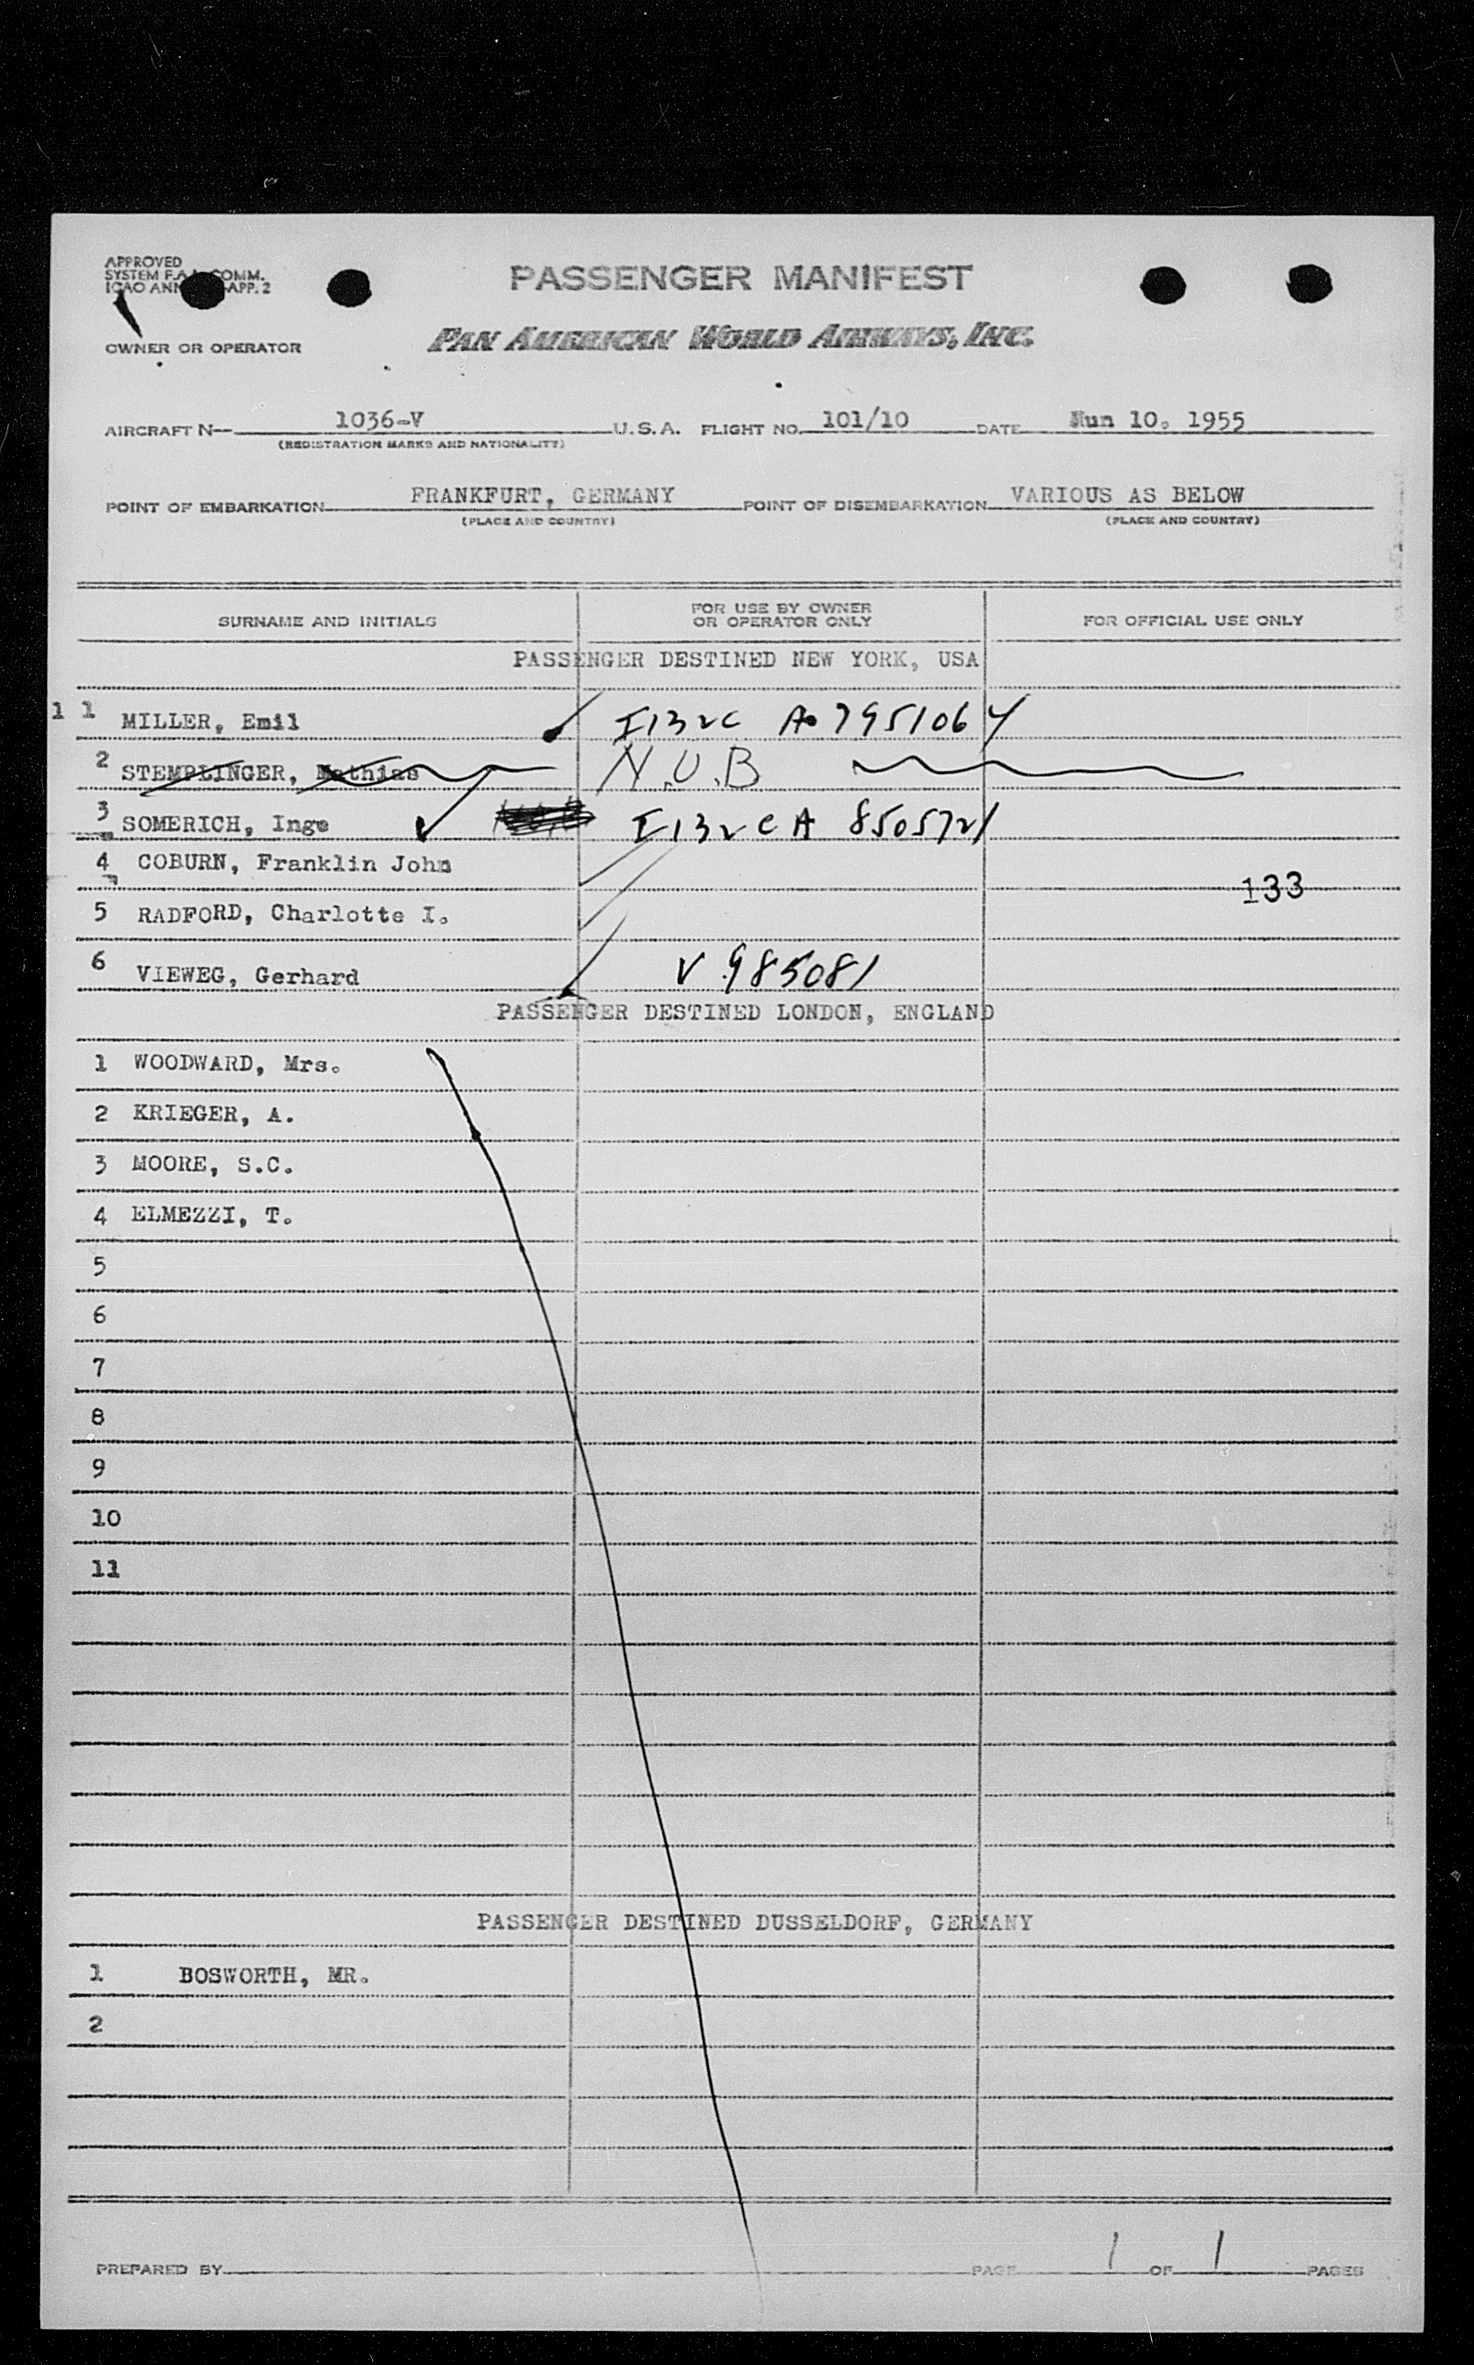 APPROVED
SYSTEM F.A.L. COMM.
ICAO ANN APP. 2
PASSENGER MANIFEST
OWNER OR OPERATOR
PAN AMERICAN WORLD AIRWAYS, INC.
AIRCRAFT N- 1036-V U.S.A. FLIGHT NO. 101/10 DATE 10. 1955
(REGISTRATION MARKS AND NATIONALITY)
POINT OF EMBARKATION FRANKFURT, GERMANY POINT OF DISEMBARKATION VARIOUS AS BELOW
(PLACE AND COUNTRY) (PLACE AND COUNTRY)
SURNAME AND INITIALS FOR USE BY OWNER OR OPERATOR ONLY FOR OFFICIAL USE ONLY
PASSENGER DESTINED NEW YORK, USA
1 1 MILLER, Emil I132c A 7951064
2 STEMPLINGER, Mathias N.U.B
3 SOMERICH, Inge I132c A 8505721
4 COBURN, Franklin John
133
5 RADFORD, Charlotte I.
6 VIEWEG, Gerhard V 985081
PASSENGER DESTINED LONDON, ENGLAND
1 WOODWARD, Mrs.
2 KRIEGER, A.
3 MOORE, S.C.
4 ELMEZZI, T.
5
6
7
8
9
10
11
PASSENGER DESTINED DUSSELDORF, GERMANY
1 BOSWORTH, MR.
2
PREPARED BY PAGE 1 OF 1 PAGES